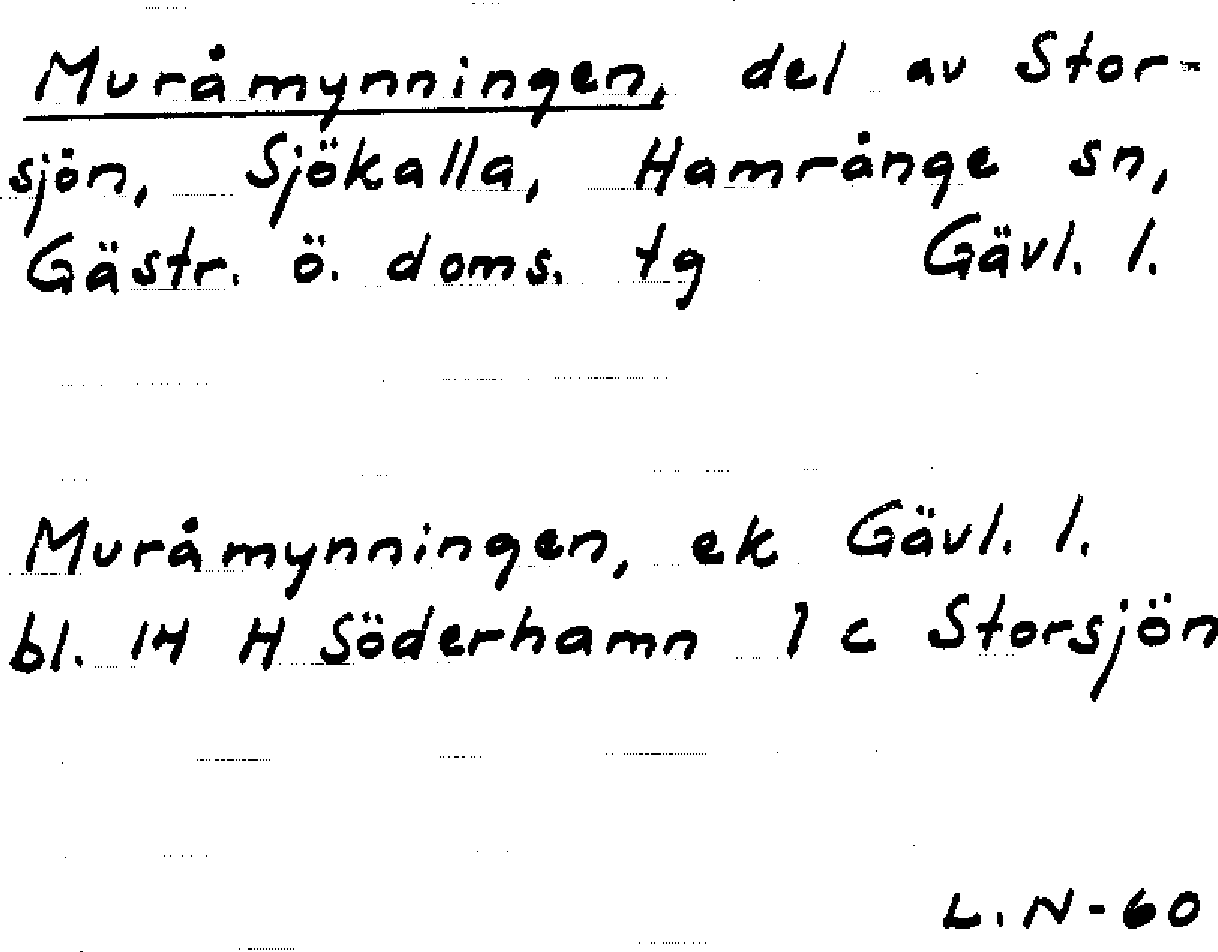 Muråmynningen, del av Stor-
sjön, Sjökalla, Hamrånge sn,
Gästr. ö. doms. tg Gävl. l.
Muråmynningen, ek Gävl. l.
bl. 14 H Söderhamn 1 c Storsjön
L.N-60